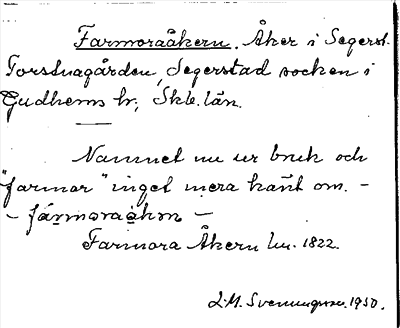 Farmoraåkern. Åker i Segerst.
Torstvagården, Segerstad socken i
Gudhems hr; Skb. län.
Namnet nu ur bruk och
"farmor" inget mera känt om. –
– fármoraåkɐn –
Farmora Åkern lm. 1822.
L.M. Svenungsson. 1950.